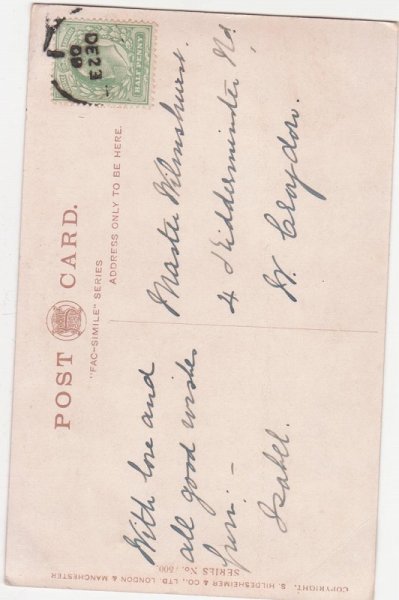 POST CARD.
"FAC-SIMILE" SERIES
ADDRESS ONLY TO BE HERE.
HALF PENNY
DE 23
09
With love and
all good wishes
from: -
Isabel.
Master Wilmshurst.
4 Kidderminster Rd
W. Croydon.
COPYRIGHT. S. HILDESHEIMER & CO., LTD. LONDON & MANCHESTER
SERIES No. 7500.